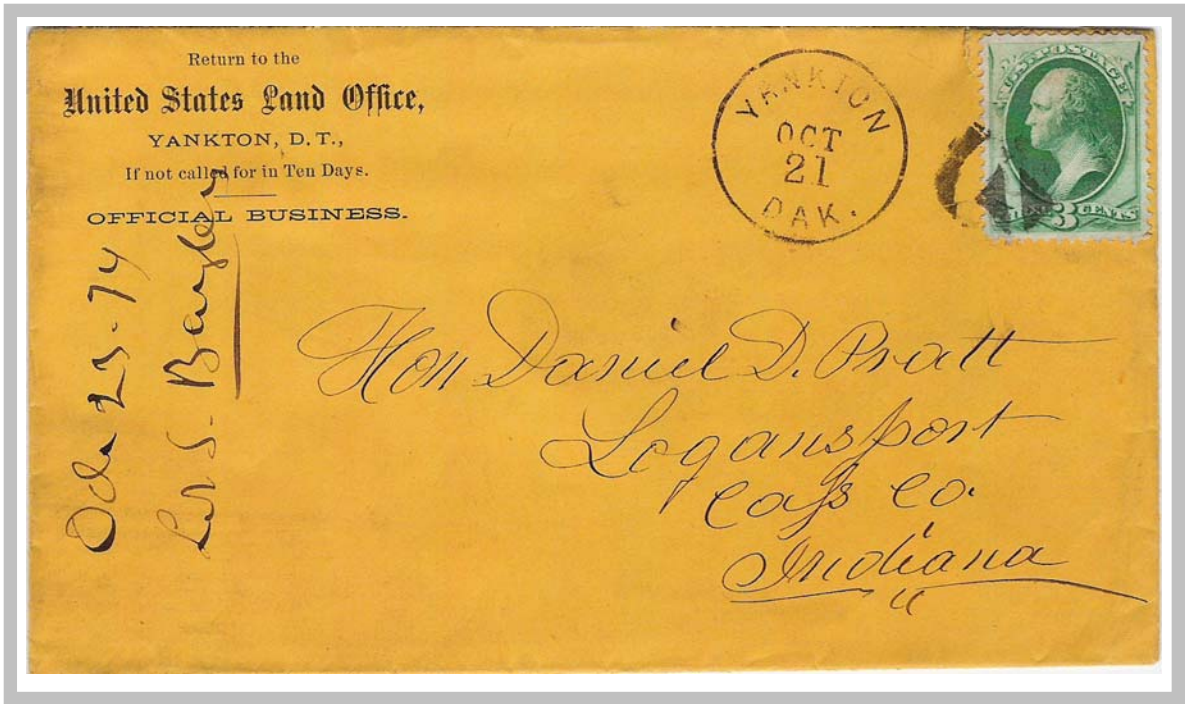 Return to the
United States Land Office,
YANKTON, D. T.,
If not called for in Ten Days.
OFFICIAL BUSINESS.
YANKTON
OCT
21
DAK.
U.S. POSTAGE
3 CENTS
Hon Daniel D. Pratt
Logansport
Cass Co.
Indiana
74
S. Bayler